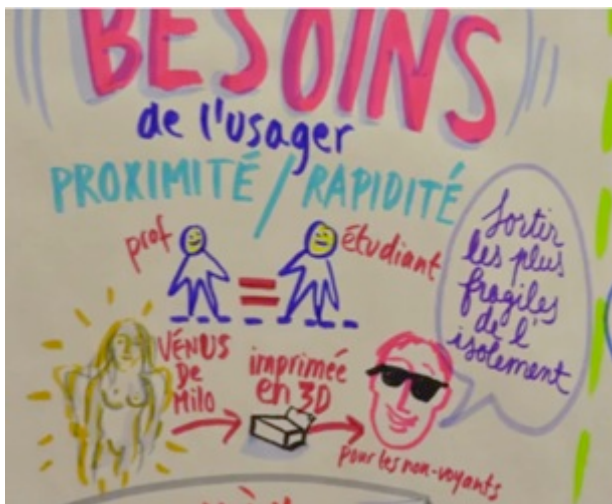 BESOINS
de l'usager
PROXIMITÉ / RAPIDITÉ
prof
=
étudiant
Sortir
les plus
fragiles
de l'
isolement
VÉNUS
De
Milo
imprimée
en 3D
pour les non-voyants